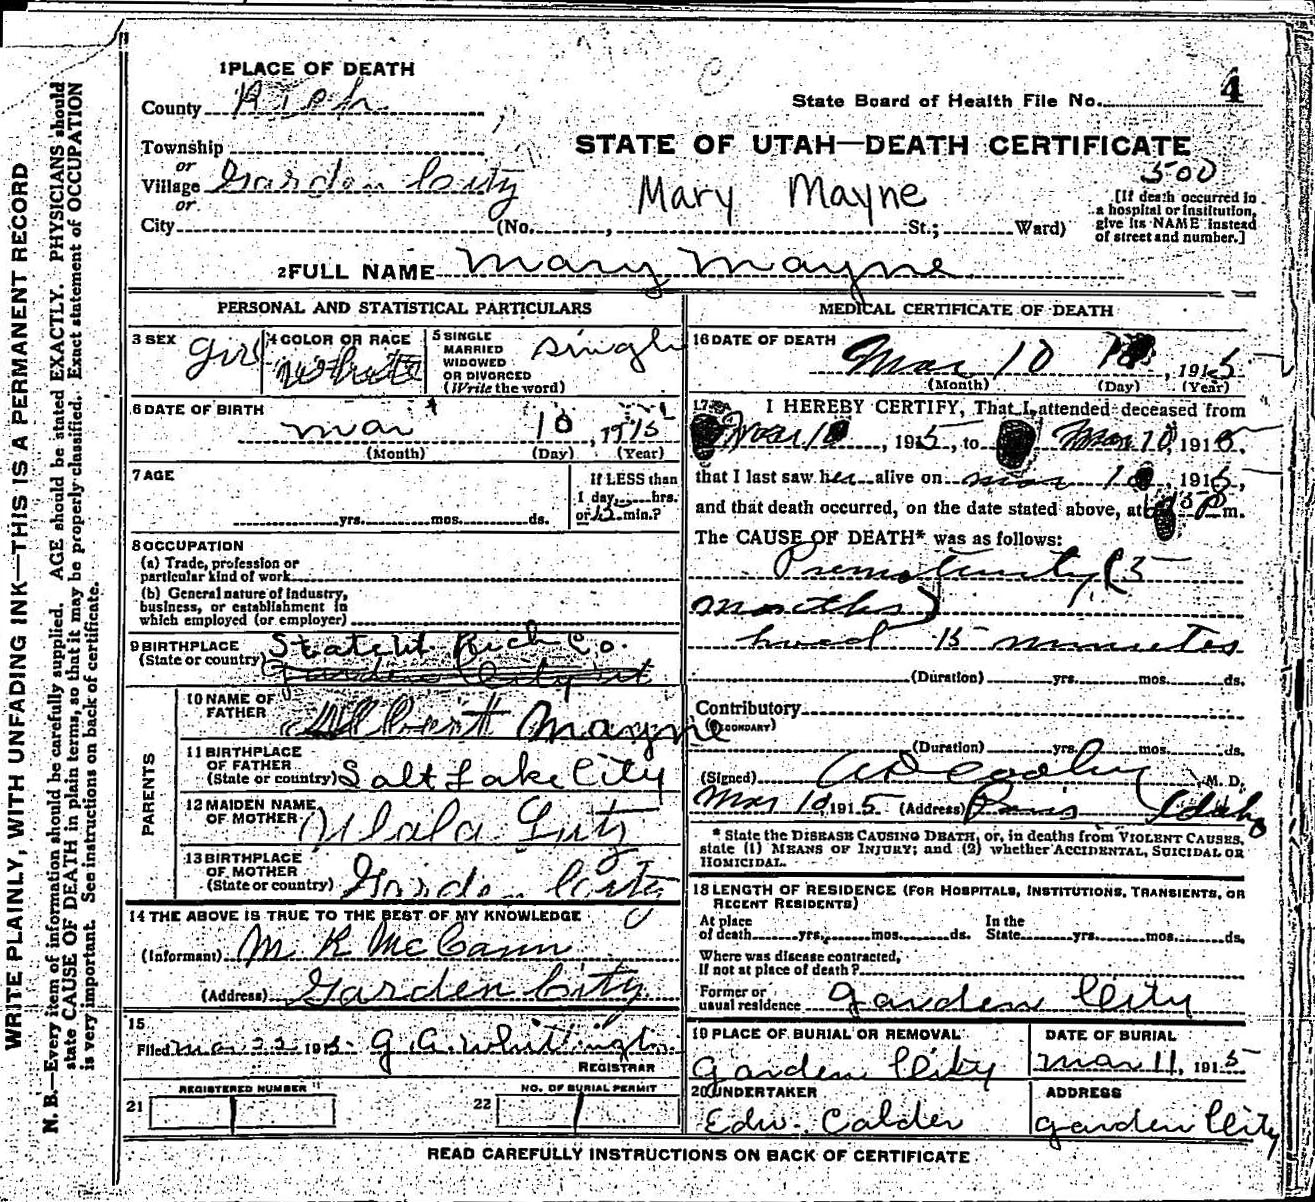 WRITE PLAINLY, WITH UNFADING INK—THIS IS A PERMANENT RECORD
N. B.—Every item of information should be carefully supplied. AGE should be stated EXACTLY. PHYSICIANS should
state CAUSE OF DEATH in plain terms, so that it may be properly classified. Exact statement of OCCUPATION
is very important. See instructions on back of certificate.
1 PLACE OF DEATH
County Rich
Township
or
Village Garden City
or
City (No. , St.; Ward)
State Board of Health File No. 4
STATE OF UTAH—DEATH CERTIFICATE
500
Mary Mayne
[If death occurred in
a hospital or institution,
give its NAME instead
of street and number.]
2 FULL NAME Mary Mayne
PERSONAL AND STATISTICAL PARTICULARS
3 SEX girl
4 COLOR OR RACE white
5 SINGLE
MARRIED
WIDOWED
OR DIVORCED
(Write the word)
single
6 DATE OF BIRTH
Mar 10, 1915
(Month) (Day) (Year)
7 AGE
yrs. mos. ds.
If LESS than
1 day, hrs.
or 15 min.?
8 OCCUPATION
(a) Trade, profession or
particular kind of work
(b) General nature of industry,
business, or establishment in
which employed (or employer)
9 BIRTHPLACE
(State or country)
Rich Co.
Garden City ut
PARENTS
10 NAME OF
FATHER
Albert Mayne
11 BIRTHPLACE
OF FATHER
(State or country) Salt Lake City
12 MAIDEN NAME
OF MOTHER
Ulala Lutz
13 BIRTHPLACE
OF MOTHER
(State or country) Garden City
14 THE ABOVE IS TRUE TO THE BEST OF MY KNOWLEDGE
(Informant) M R McCann
(Address) Garden City
15
Filed Mar 22 1915 G A Whittington
REGISTRAR
REGISTERED NUMBER
21
NO. OF BURIAL PERMIT
22
MEDICAL CERTIFICATE OF DEATH
16 DATE OF DEATH
Mar 10, 1915
(Month) (Day) (Year)
17 I HEREBY CERTIFY, That I attended deceased from
Mar 10, 1915, to Mar 10, 1915
that I last saw her alive on Mar 10, 1915,
and that death occurred, on the date stated above, at P m.
The CAUSE OF DEATH* was as follows:
Prematurity (5
months)
lived 15 minutes
(Duration) yrs. mos. ds.
Contributory
(SECONDARY)
(Duration) yrs. mos. ds.
(Signed) M. D.
Mar 10, 1915 (Address) Paris Idaho
* State the DISEASE CAUSING DEATH, or, in deaths from VIOLENT CAUSES,
state (1) MEANS OF INJURY; and (2) whether ACCIDENTAL, SUICIDAL OR
HOMICIDAL.
18 LENGTH OF RESIDENCE (FOR HOSPITALS, INSTITUTIONS, TRANSIENTS, OR
RECENT RESIDENTS)
At place
of death yrs. mos. ds.
In the
State yrs. mos. ds.
Where was disease contracted,
if not at place of death?
Former or
usual residence Garden City
19 PLACE OF BURIAL OR REMOVAL
Garden City
DATE OF BURIAL
Mar 11, 1915
20 UNDERTAKER
Edw. Calder
ADDRESS
Garden City
READ CAREFULLY INSTRUCTIONS ON BACK OF CERTIFICATE